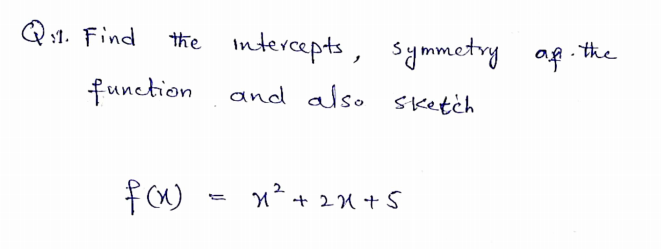 Q:1. Find the intercepts, symmetry of the
function and also sketch
f(x) = x² + 2x + 5